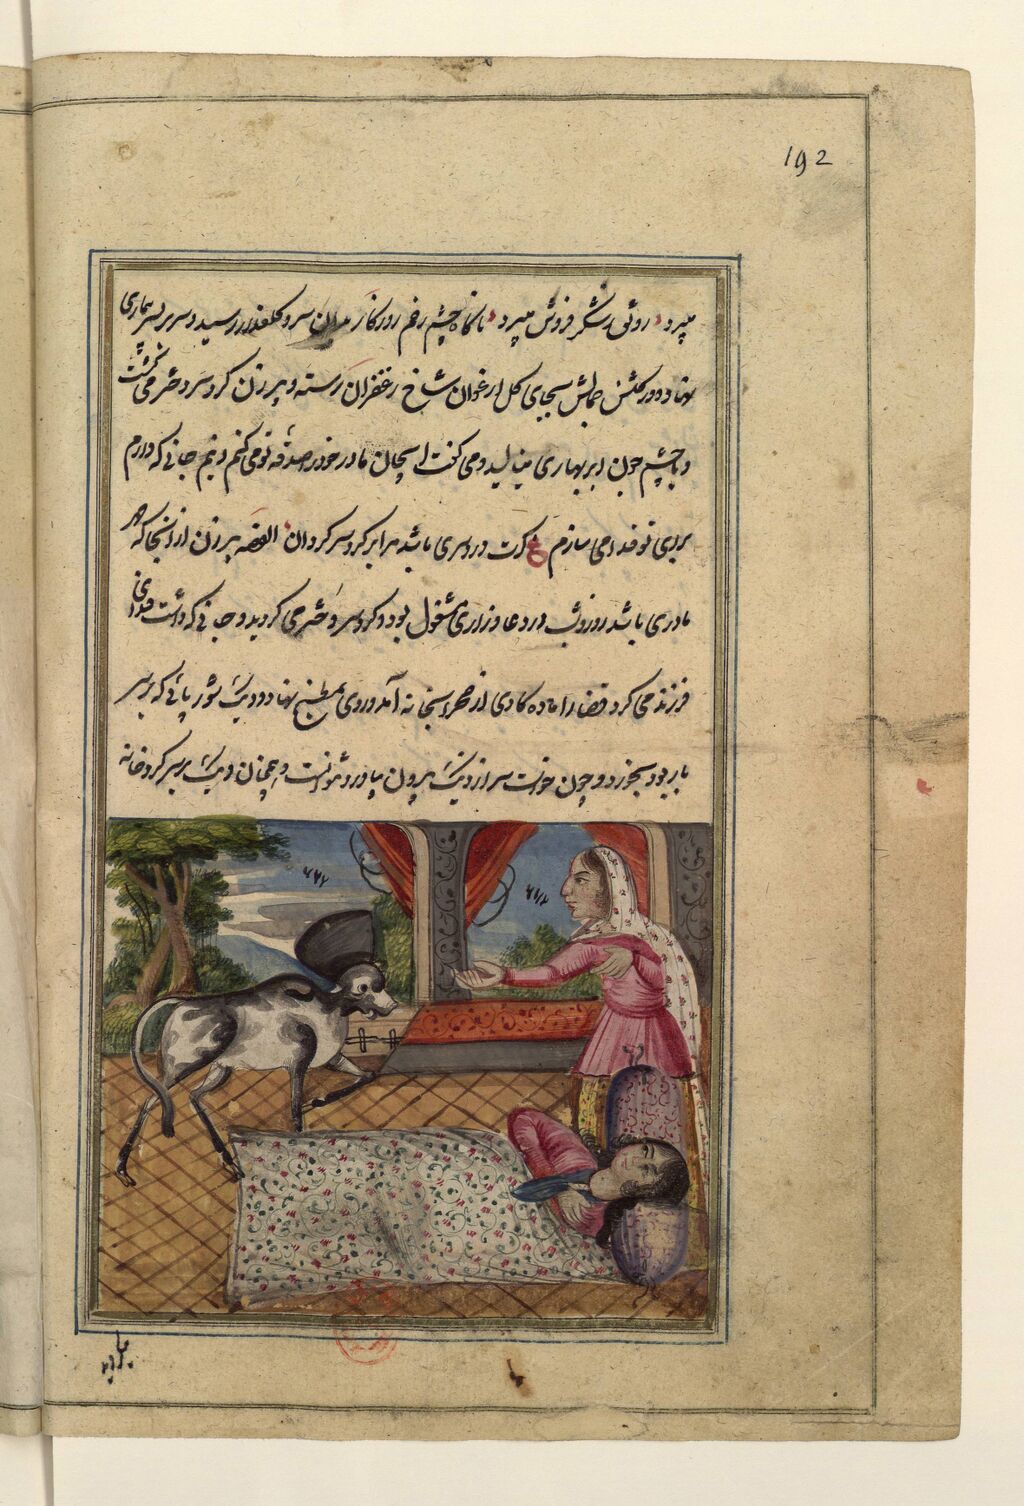 192
میبرد و رونق شکر فروش میبرد ناگاه چشم زخم روزگار بدان سرو گلعذار رسید و سر بر بستر بیماری
نهاد و در گلشن جمالش بجای گل ارغوان شاخ زعفران رسته و پیرزن گرد سر دختر می گشت
و با چشم چون ابر بهاری مینالید و می گفت ای جان مادر خود را صدقه تو می کنم و نیم جانی که دارم
برای تو فدا می سازم ع گرت درد سری باشد مرا بر گرد سر گردان القصه پیرزن از آنجا که مهر
مادری باشد روز و شب در دعا و زاری مشغول بود و گرد سر دختر می گردید و جانی که داشت فدای
فرزند می کرد قضا را ماده گاوی از صحرا بخانه آمد و روی بمطبخ نهاد و دیک شور پائی که بر سر
بار بود بخورد و چون خواست سر از دیک بیرون بیاورد نتوانست و همچنان دیک بر سر گرد خانه